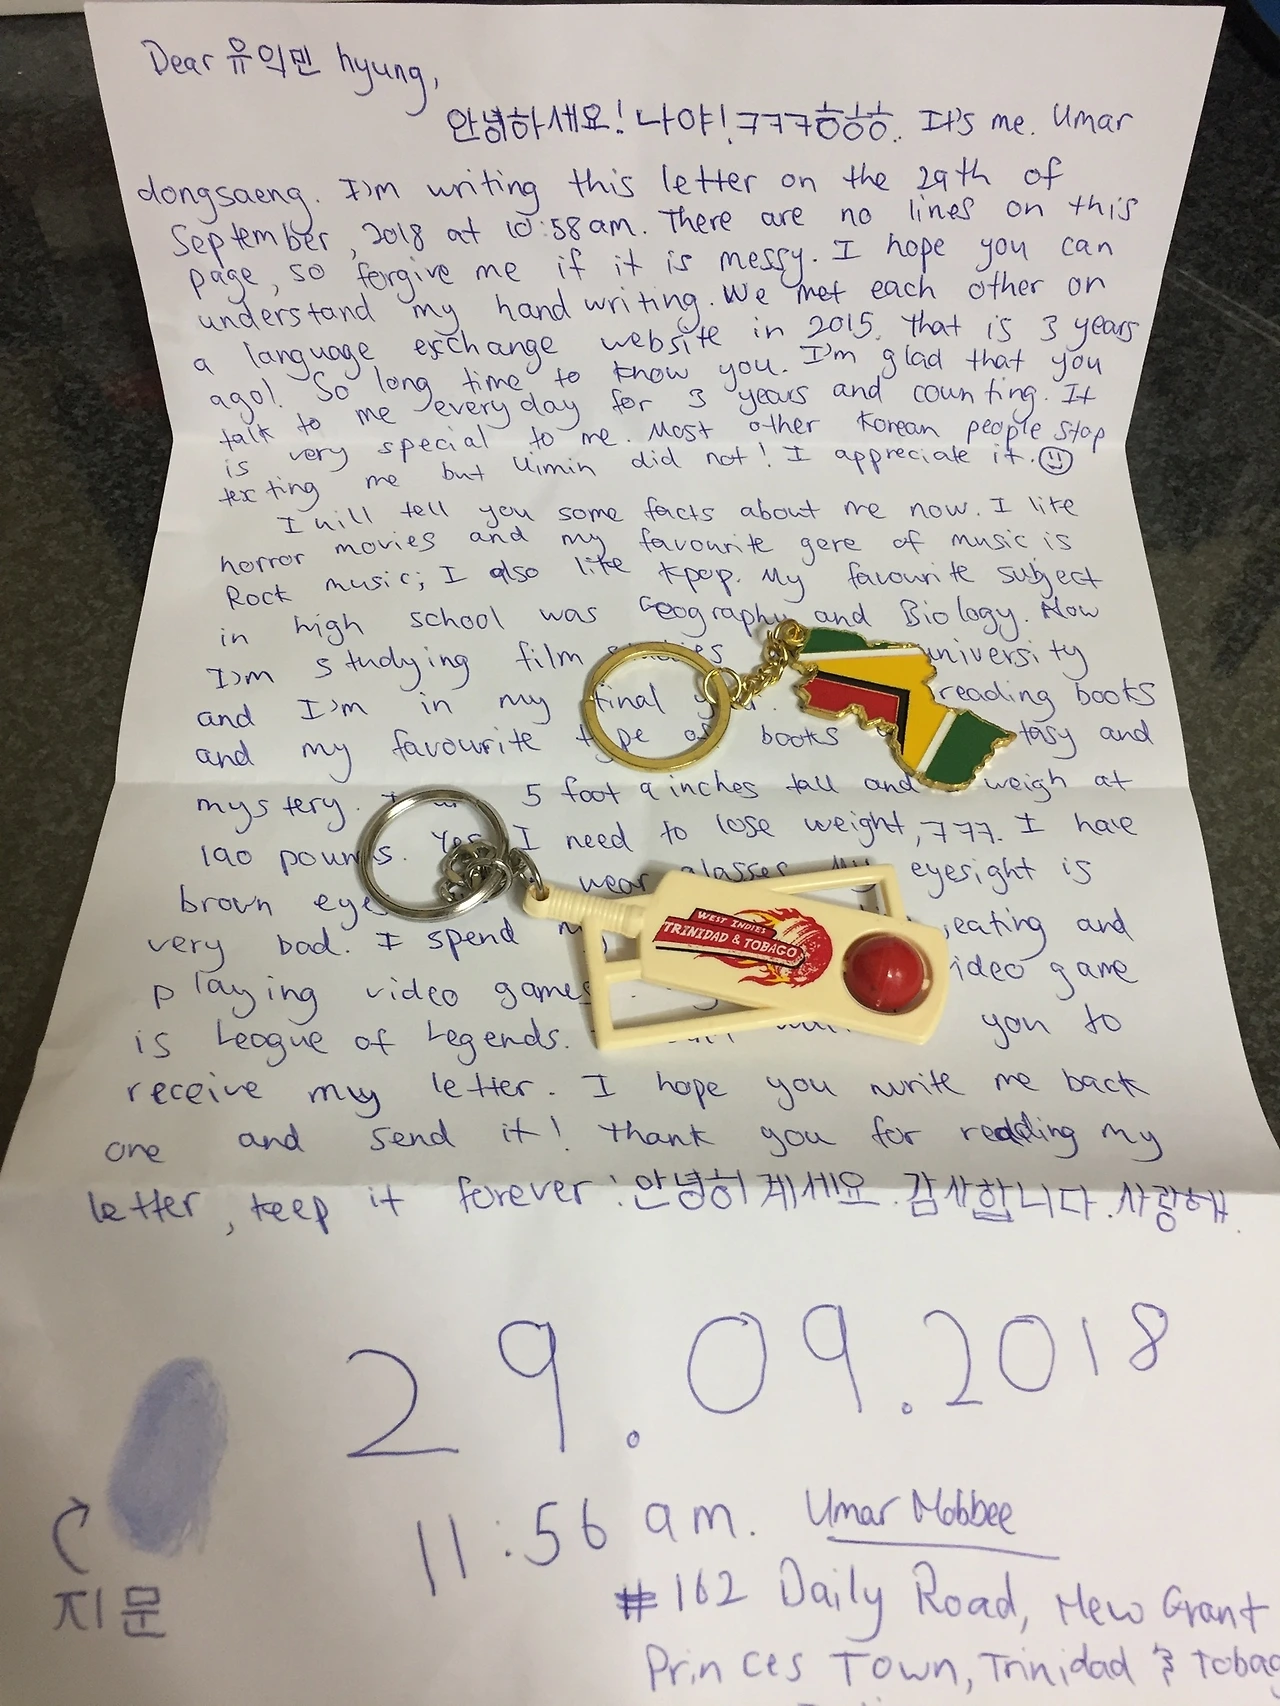 Dear 유익민 hyung,
안녕하세요! 나야! ㅋㅋㅋㅎㅎㅎ. It's me. Umar
dongsaeng. I'm writing this letter on the 29th of
September, 2018 at 10:58am. There are no lines on this
page, so forgive me if it is messy. I hope you can
understand my handwriting. We met each other on
a language exchange website in 2015. That is 3 years
ago! So long time to know you. I'm glad that you
talk to me everyday for 3 years and counting. It
is very special to me. Most other Korean people stop
texting me but Uimin did not! I appreciate it. ☺
I will tell you some facts about me now. I like
horror movies and my favourite gere of music is
Rock music; I also like kpop. My favourite subject
in high school was Geography and Biology. Now
I'm studying film university
and I'm in my final reading books
and my favourite type of books and
mystery. 5 foot 9 inches tall and weigh at
190 pounds. Yes I need to lose weight, ㅋㅋㅋ. I have
brown wear glasses. My eyesight is
very bad. I spend eating and
playing video games video game
is League of Legends. you to
receive my letter. I hope you write me back
one and send it! Thank you for reading my
letter, keep it forever! 안녕히 계세요. 감사합니다. 사랑해.
WEST INDIES
TRINIDAD & TOBAGO
29.09.2018
11:56 am. Umar Mobbee
지문
#162 Daily Road, New Grant
Princes Town, Trinidad &